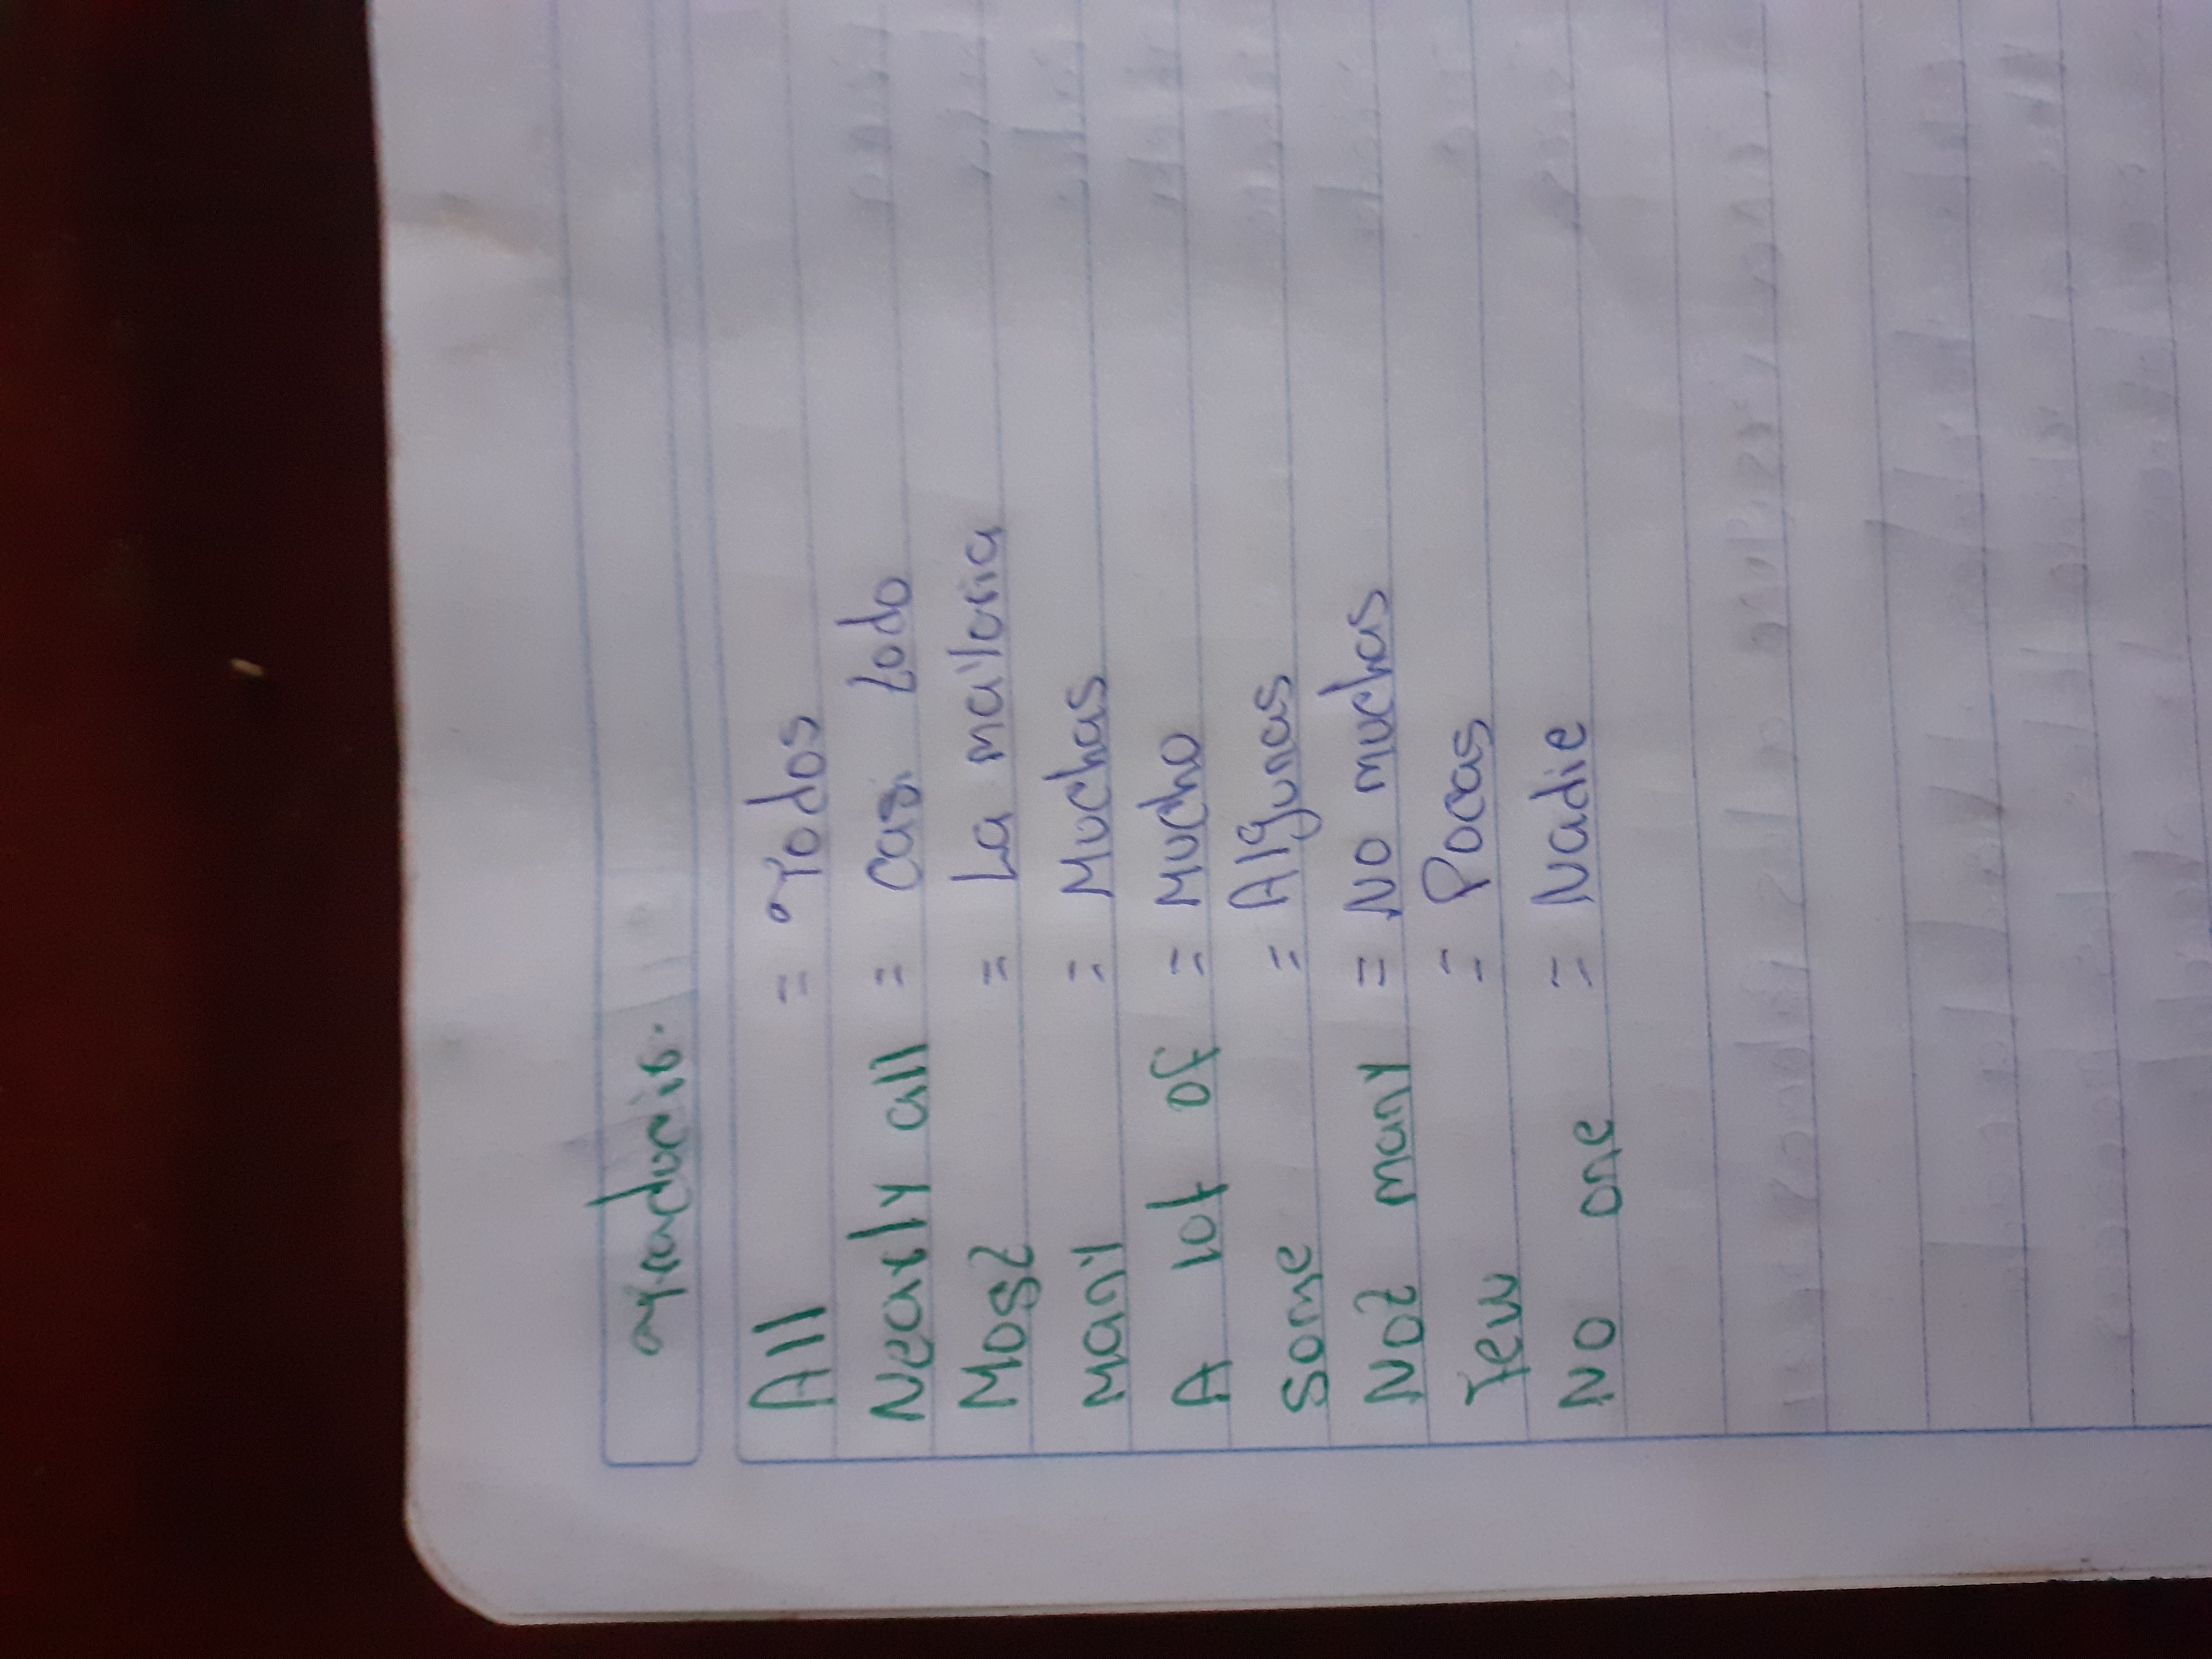 All = Todos
Nearly all = Casi todo
Most = La mailoria
many = Muchas
A lot of = Mucho
some = Algunas
Not many = No muchas
few = Pocas
No one = Nadie